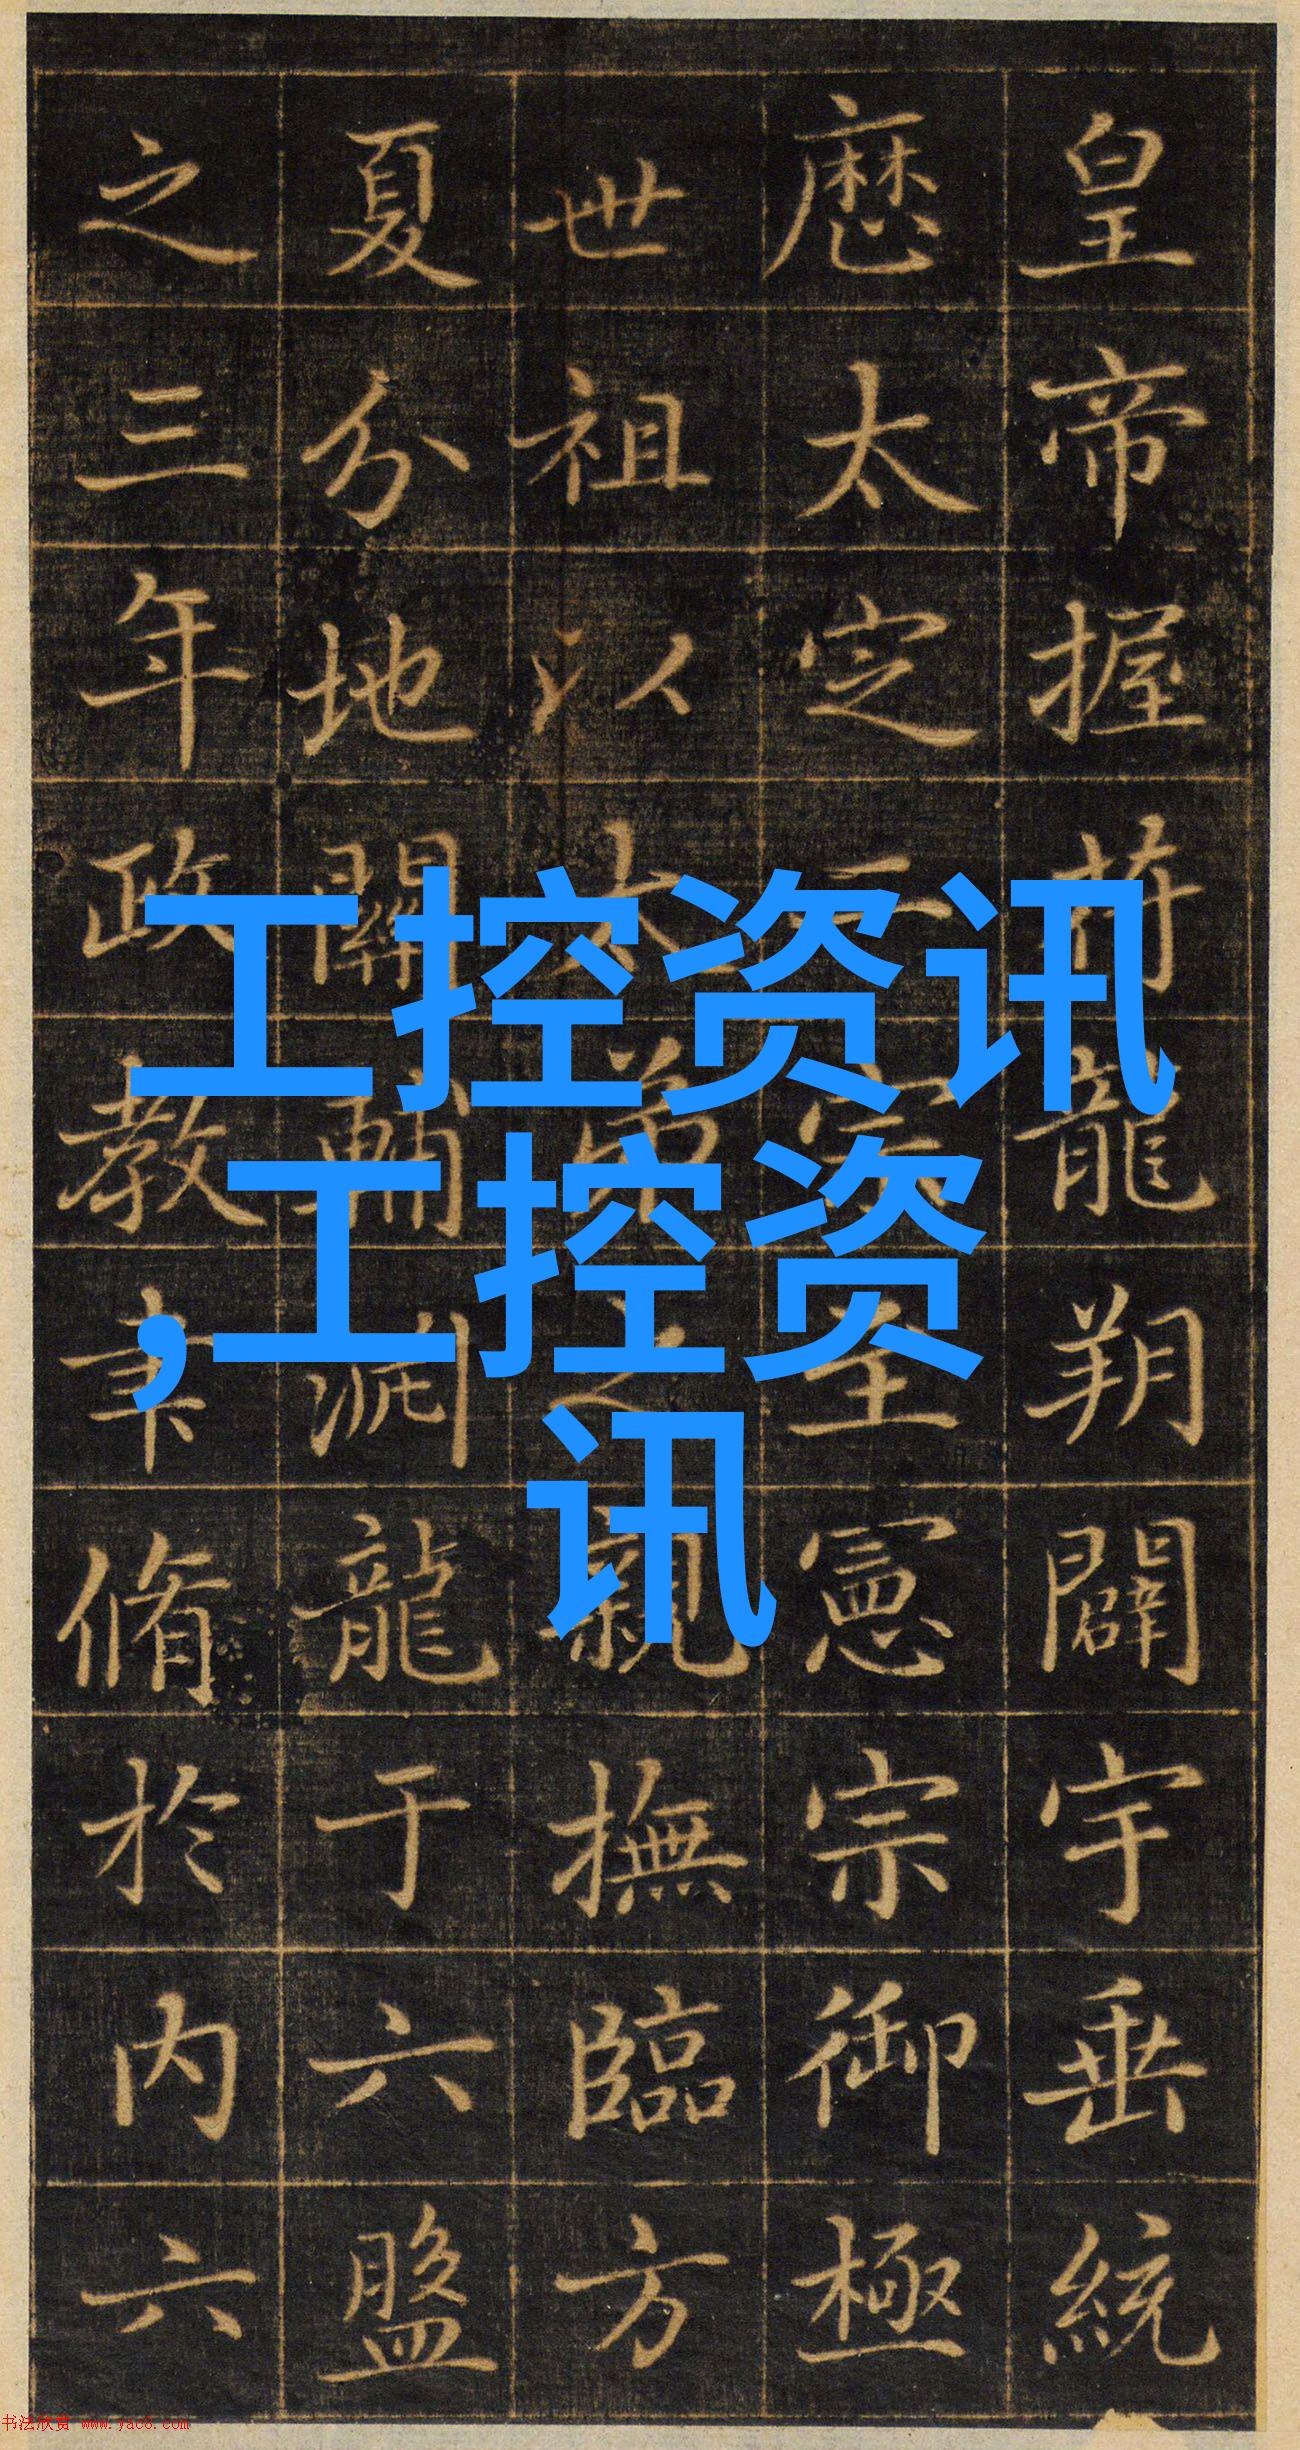 皇帝握符龍朔闢宇垂統
歷太定二宗至憲宗御極
世祖以太弟之親撫臨方
夏分地關輔淵龍于六盤
之三年政教聿脩於内六
工控资讯
,工控资
讯
书法欣赏 www.yac8.com